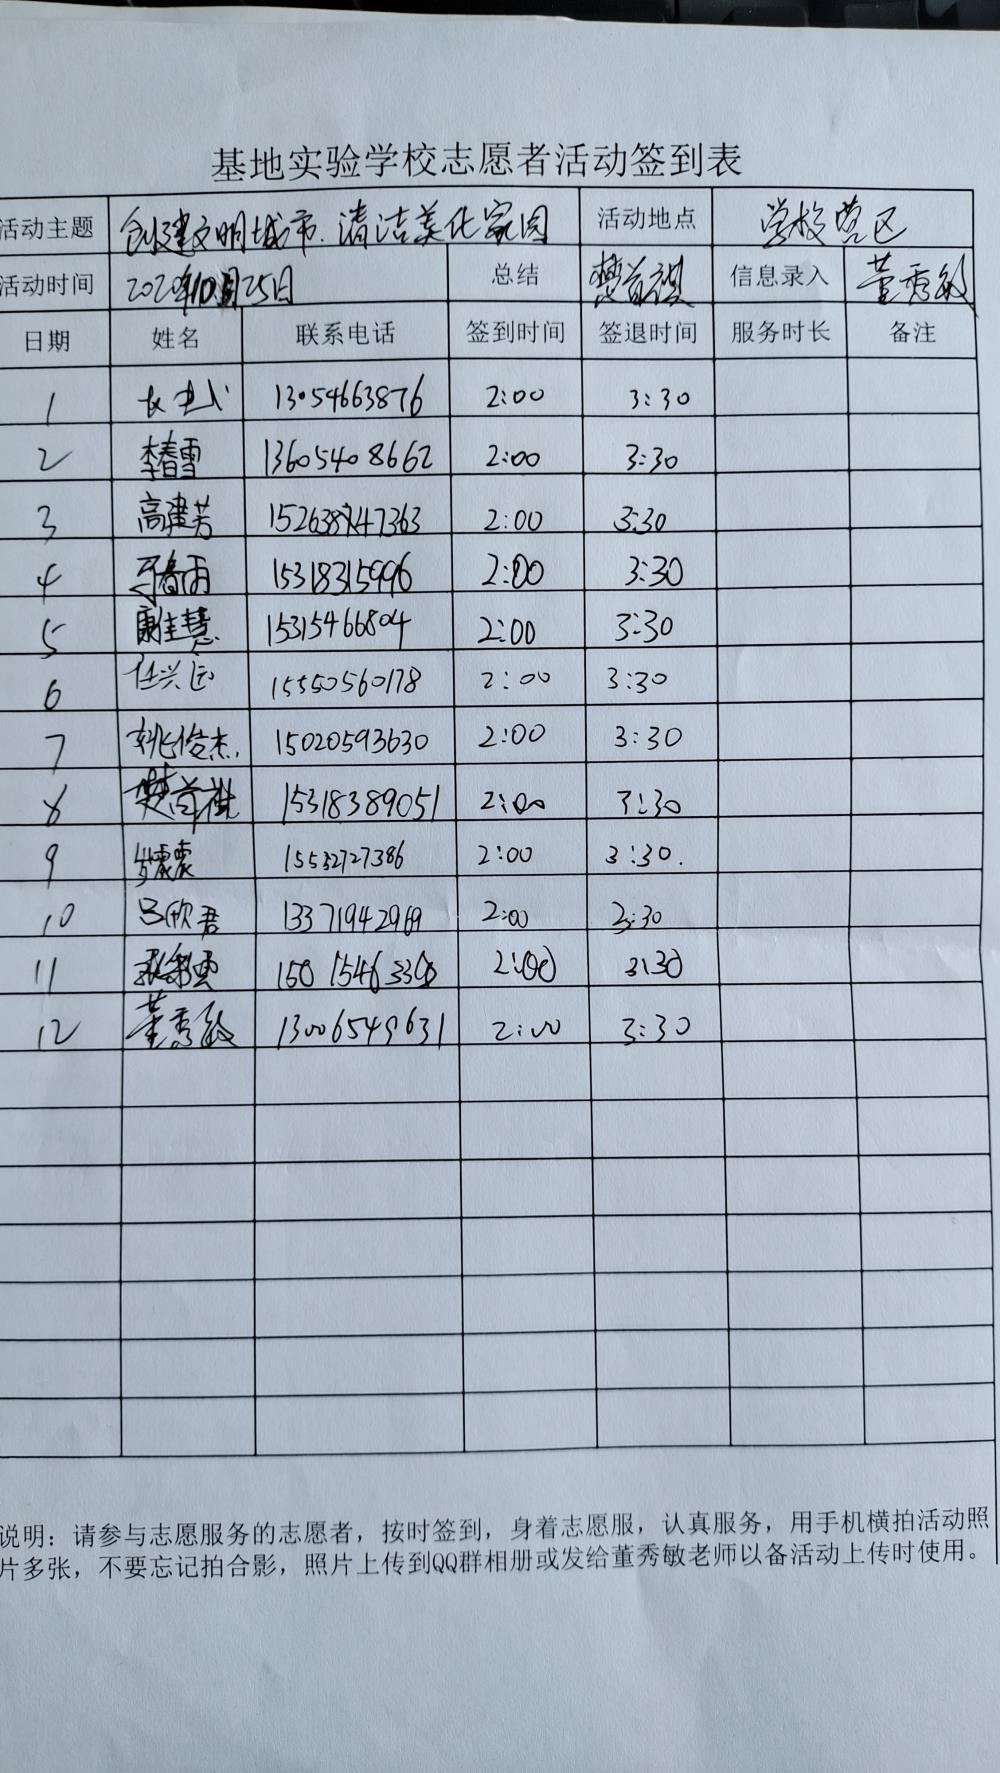 基地实验学校志愿者活动签到表
活动主题 创建文明城市.清洁美化家园 活动地点 学校营区
活动时间 2020年10月25日 总结 楚首祺 信息录入 董秀敏
日期 姓名 联系电话 签到时间 签退时间 服务时长 备注
1 13054663876 2:00 3:30
2 李春雪 13605408662 2:00 3:30
3 高建芳 2:00 3:30
4 15318315996 2:00 3:30
5 康圭慧 15315466804 2:00 3:30
6 任兴远 15550560178 2:00 3:30
7 姚俊杰. 15020593630 2:00 3:30
8 楚首祺 15318389051 2:00 3:30
9 2:00 3:30.
10 吕欣君 13371942969 2:00 3:30
11 2:00 3:30
12 董秀敏 13006549631 2:00 3:30
说明：请参与志愿服务的志愿者，按时签到，身着志愿服，认真服务，用手机横拍活动照
片多张，不要忘记拍合影，照片上传到QQ群相册或发给董秀敏老师以备活动上传时使用。